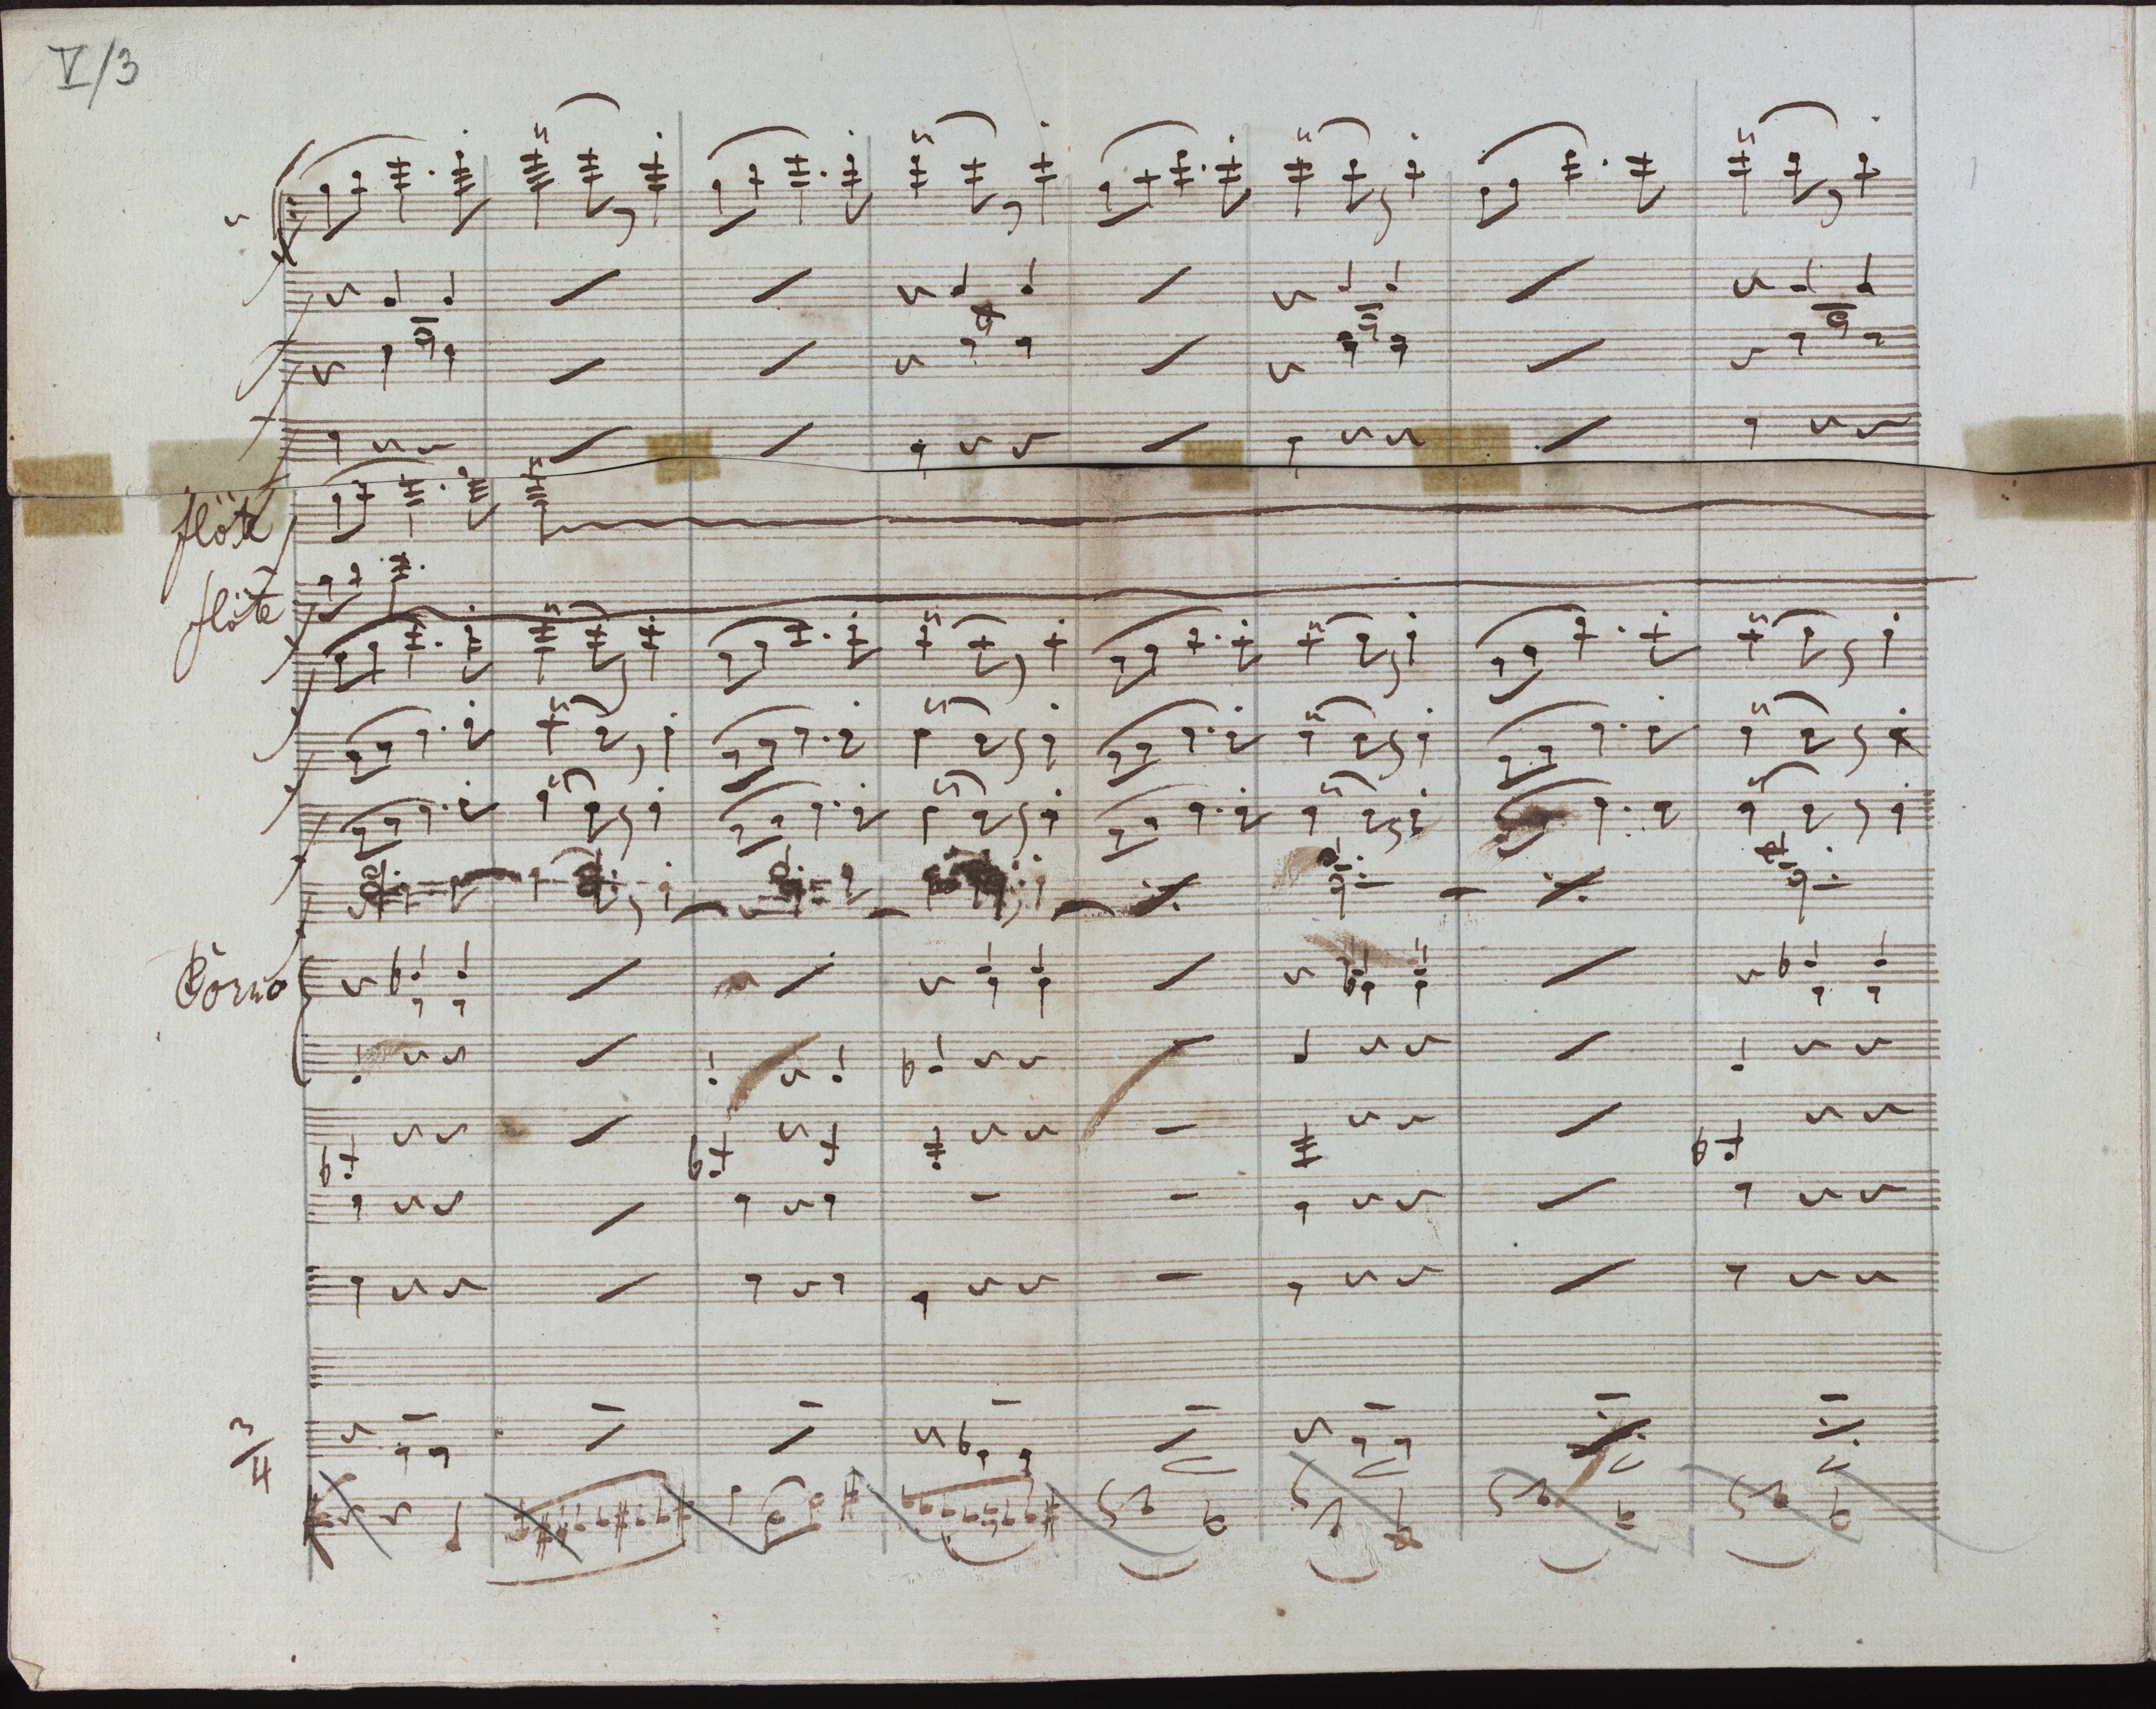 V/3
flöte
flöte
Corno
3/4